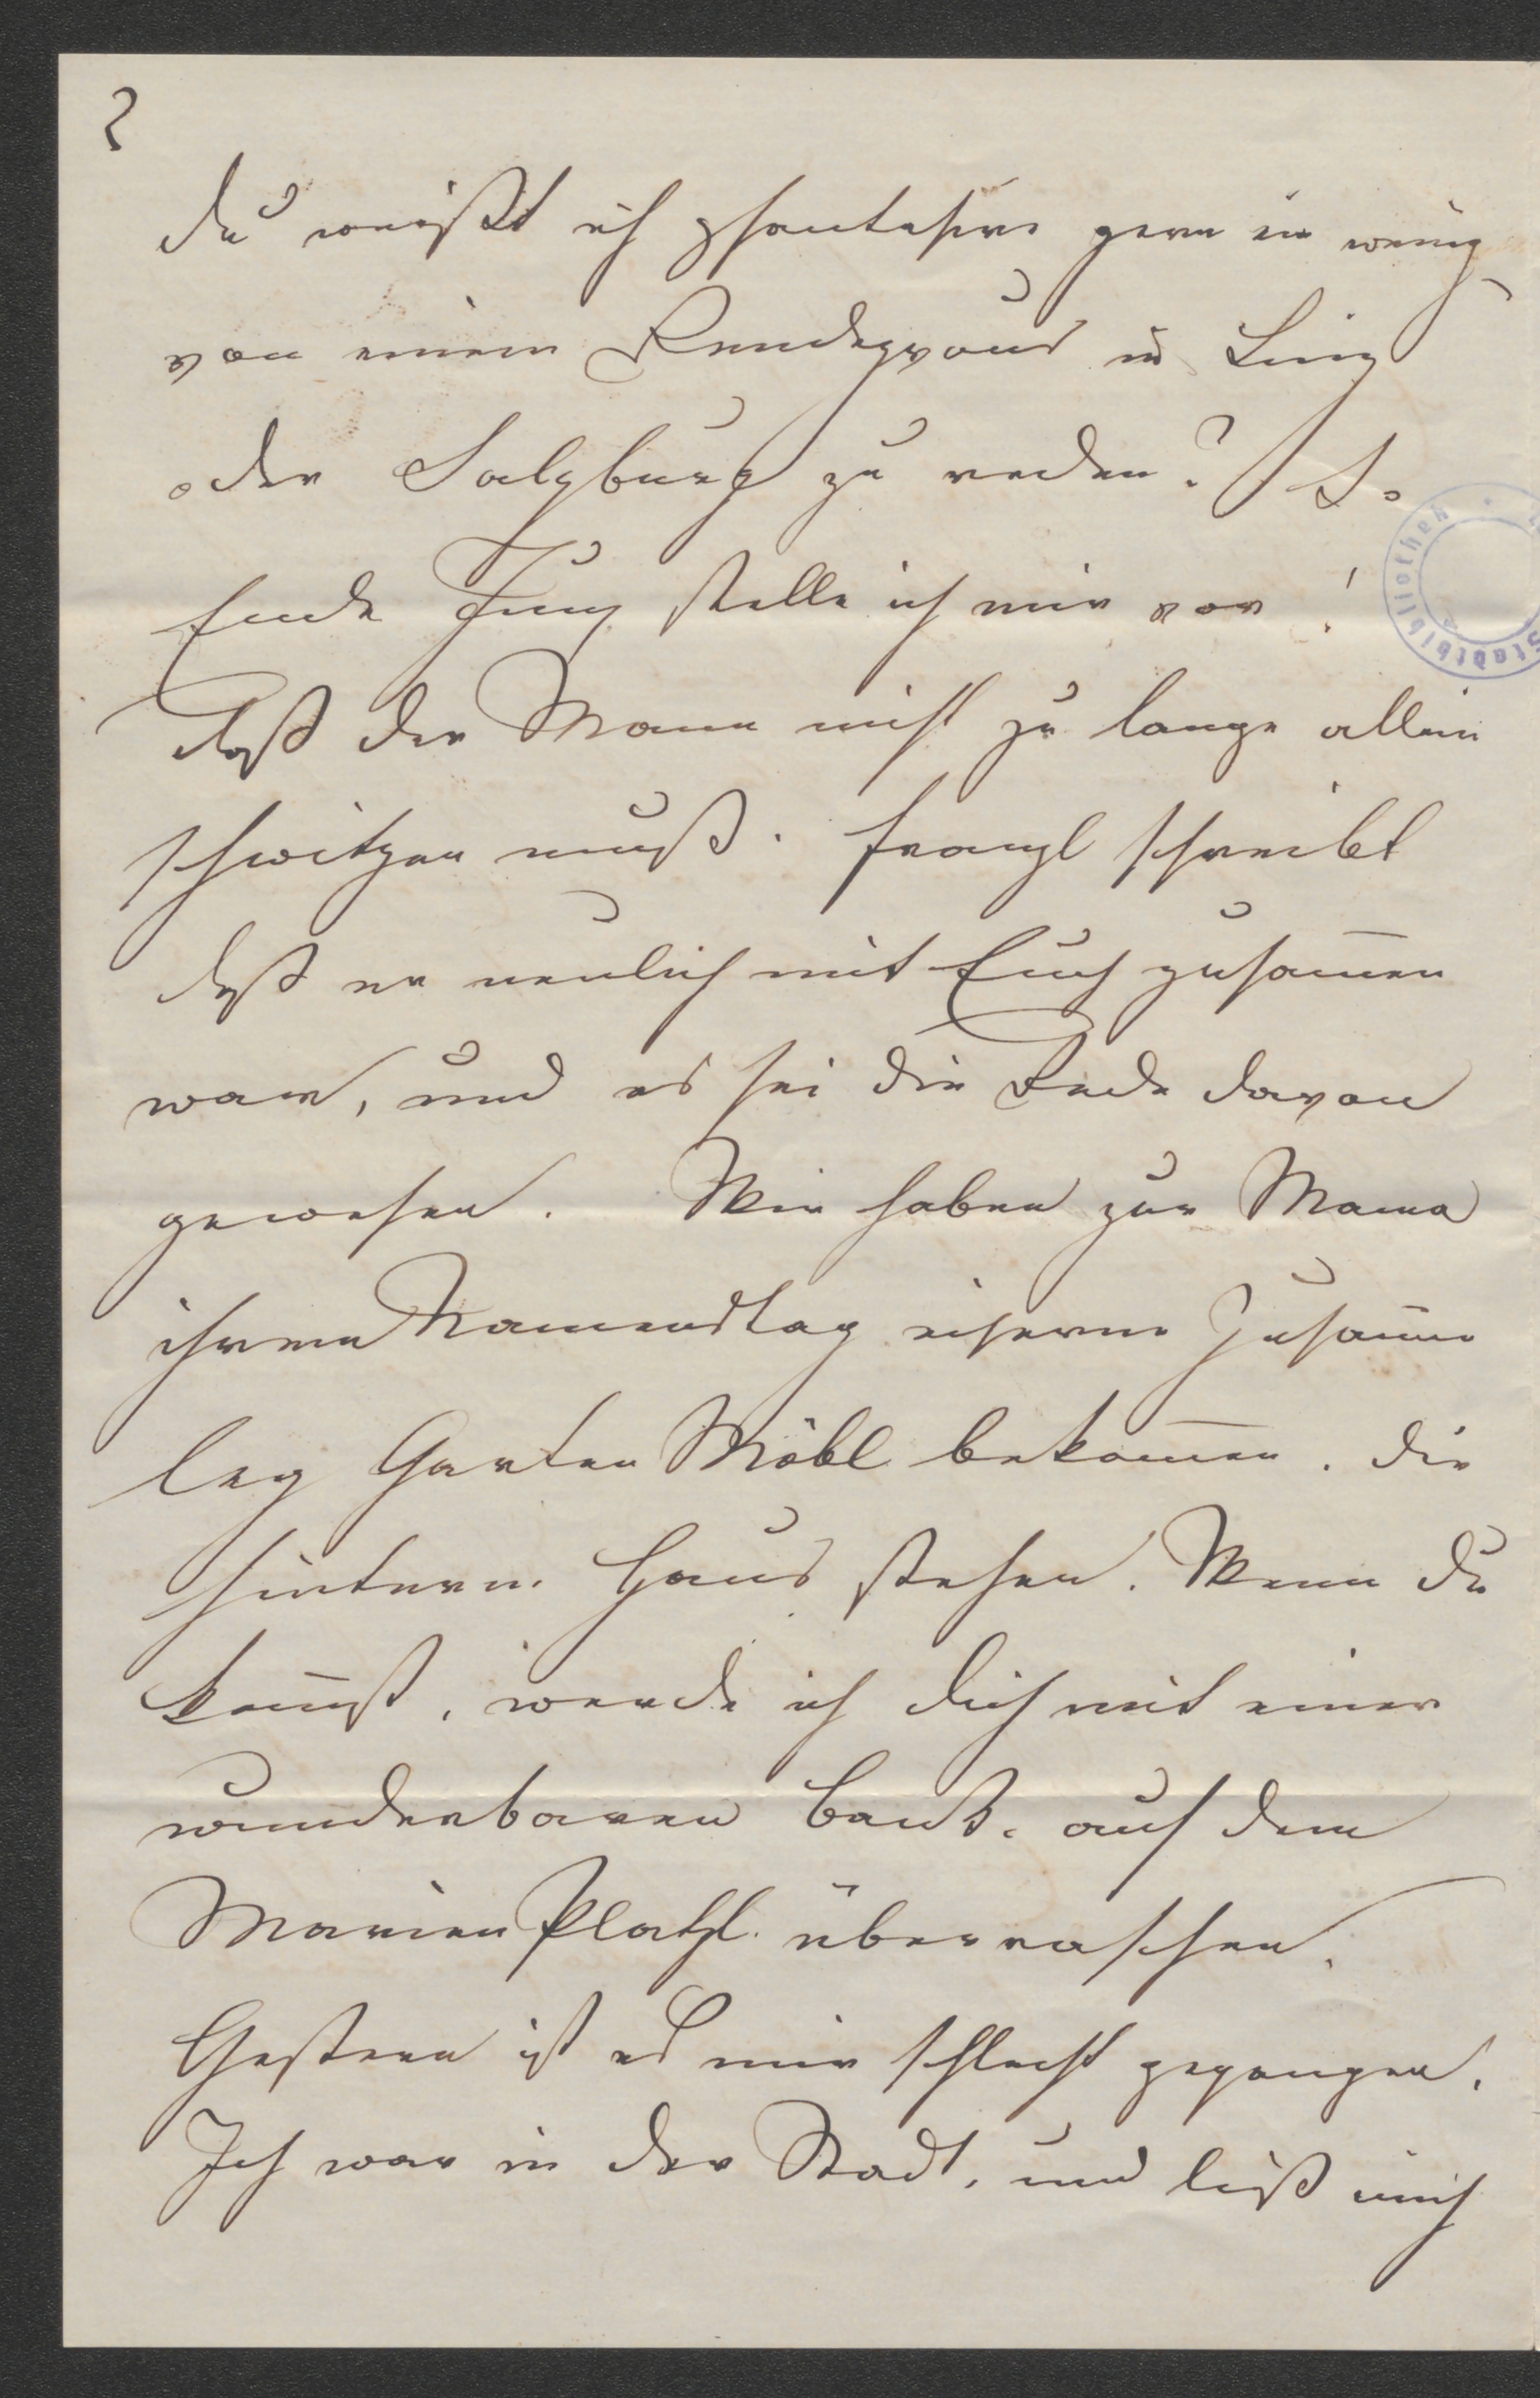 2
du weißt ich phantasire gern ein wenig
von einem Rendezvous in Linz
oder Salzburg zu reden? So
Ende Juny stelle ich mir vor!
daß der Mann nicht zu lange allein
schwitzen muß. Franzl schreibt
daß er neulich mit Euch zusam̄en
war, und es sei die Rede davon
gewesen. Wir haben zur Mama
ihren Namenstag eiserne Zusam̄e
leg Garten Möbl bekom̄en. die
hinterm Haus stehen. Wenn du
kom̄st, werde ich dich mit einer
wunderbaren Bank. auf dem
Marien Platzl. überraschen.
Gestern ist es mir schlecht gegangen.
Ich war in der Stadt, und ließ mich
Stadtbibliothek